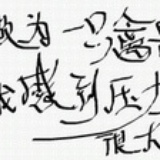 为一只
我感到压力
很大